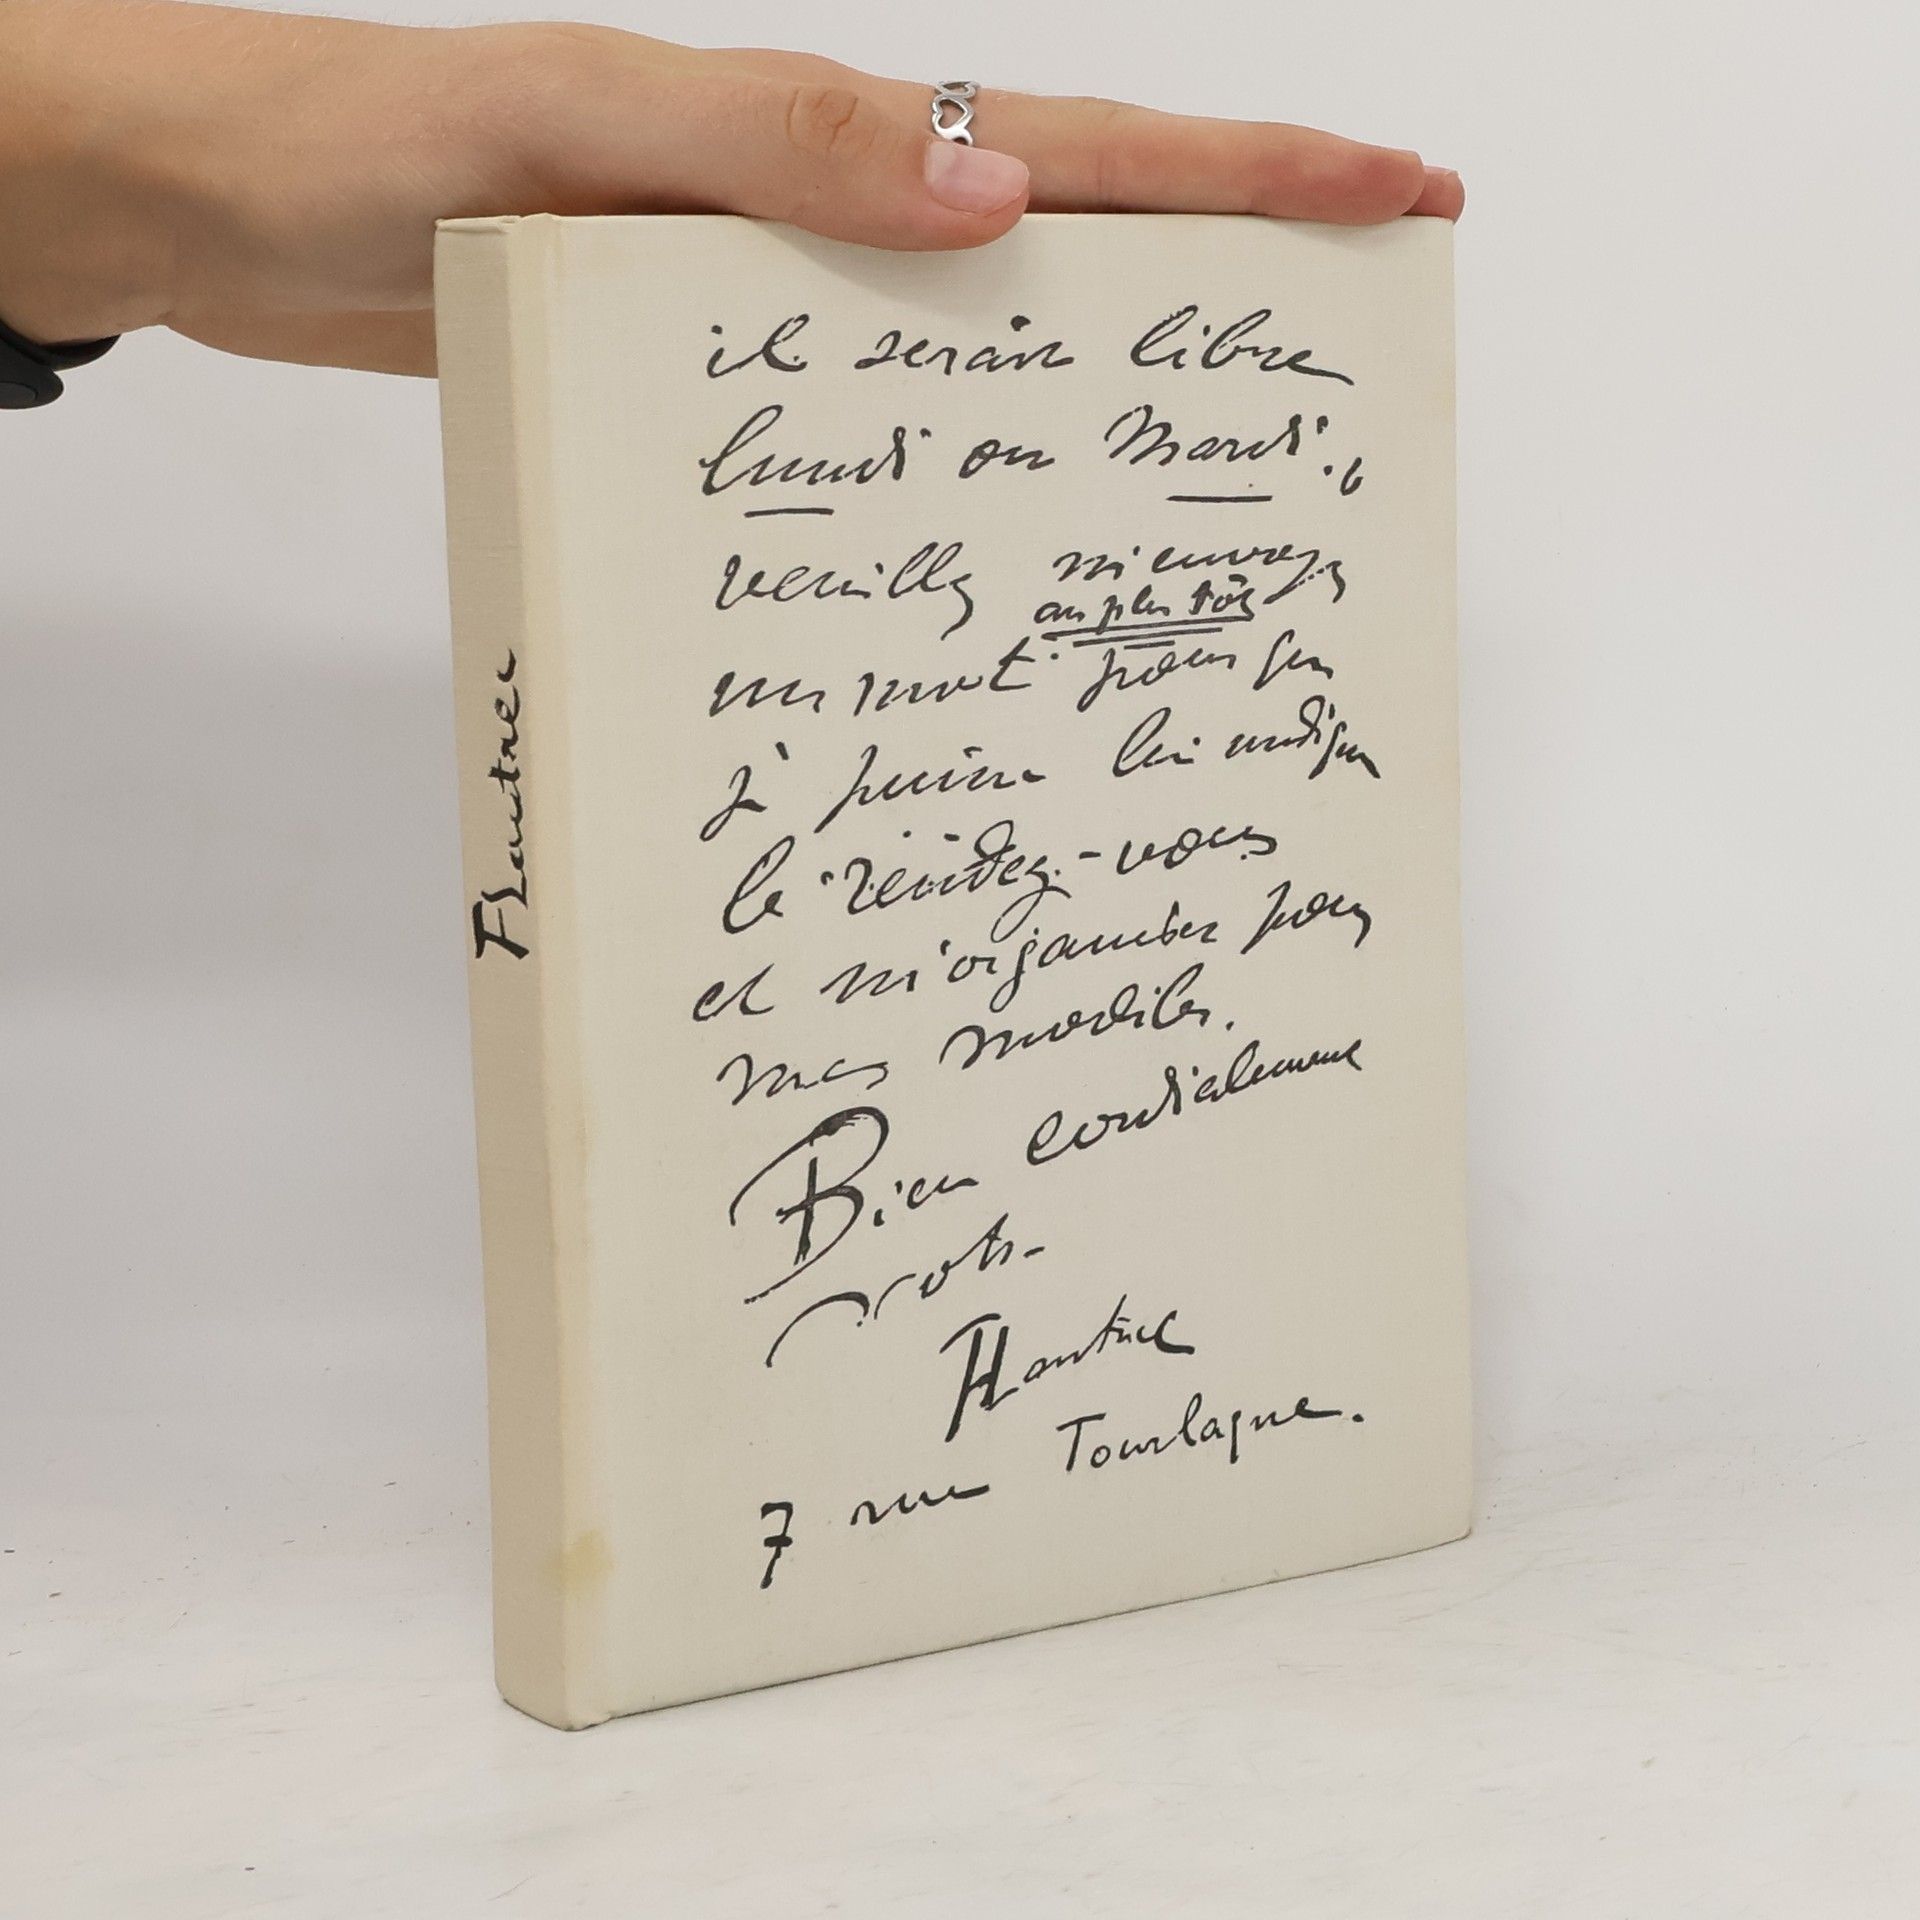 HLautrec
il serait libre
lundi ou Mardi.
veuillez m'envoyer
au plus tôt
un mot pour que
je puisse lui indiquer
le rendez-vous
et m'organiser pour
mes modèles.
Bien cordialement
HLautrec
7 rue Tourlaque.